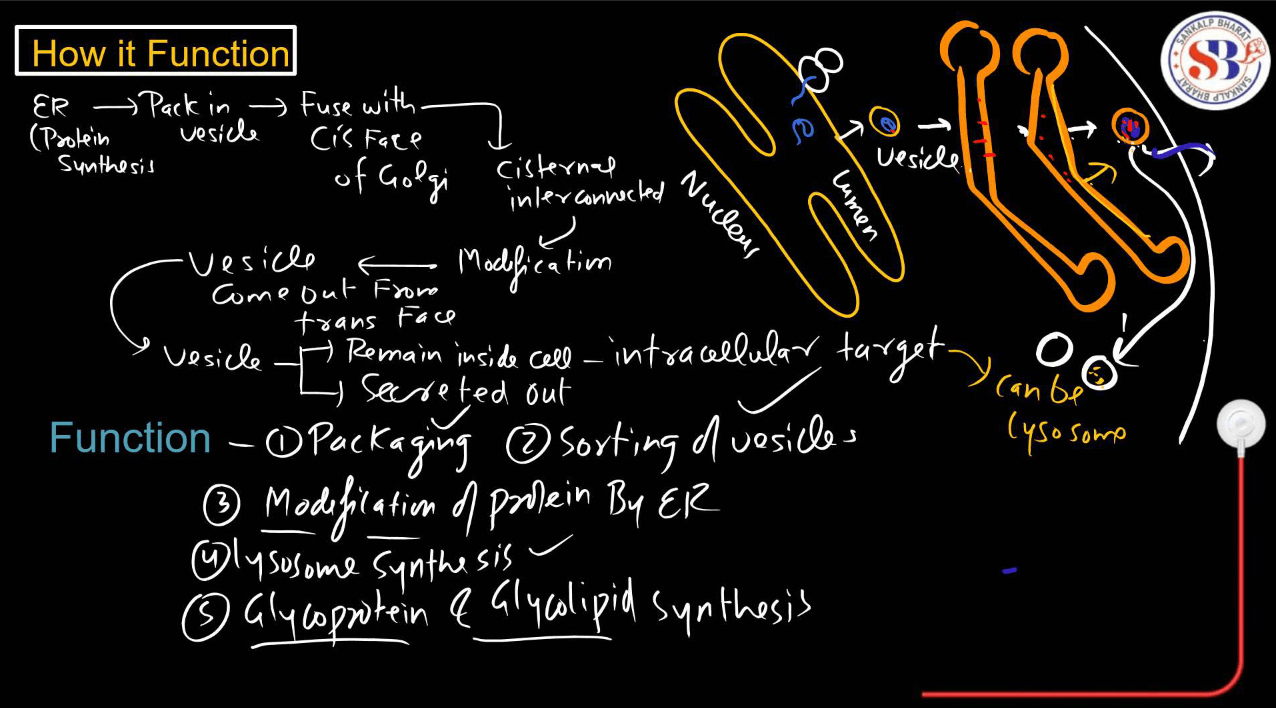 How it Function
ER → Pack in → Fuse with
(Protein vesicle Cis Face
Synthesis of Golgi
Cisternal
interconnected
Vesicle ← Modification
Come out From
trans Face
Vesicle → Remain inside cell - intracellular target
→ Secreted out
can be
lysosome
Function - ① Packaging ② Sorting of vesicles
③ Modification of protein By ER
④ lysosome Synthesis
⑤ Glycoprotein & Glycolipid Synthesis
Nucleus
Lumen
Vesicle
SANKALP BHARAT
SB
SANKALP BHARAT